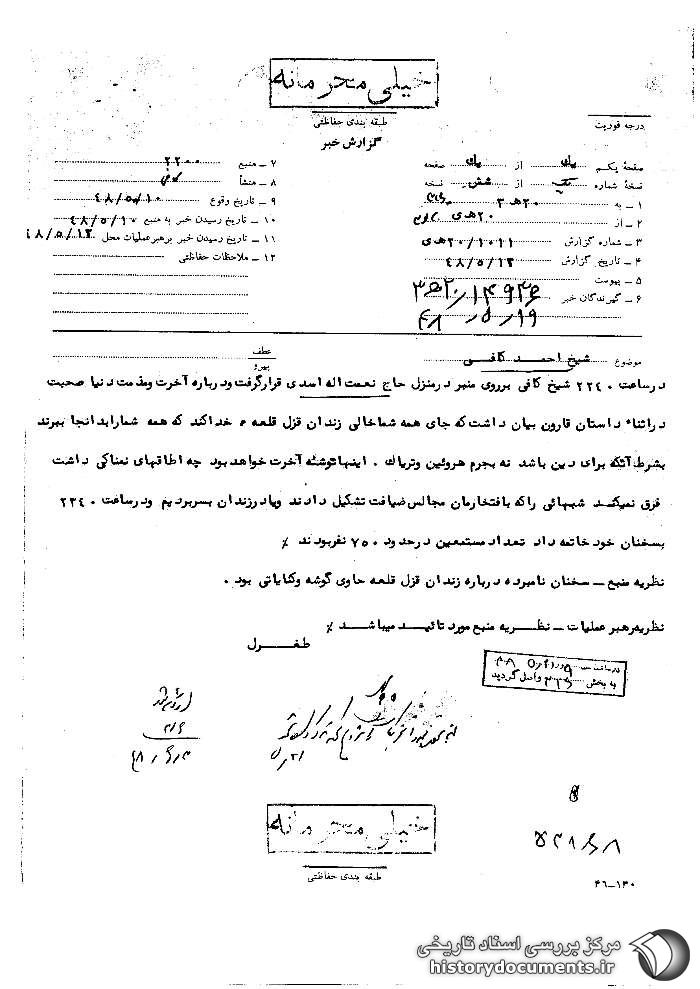 خیلی محرمانه
طبقه بندی حفاظتی
گزارش خبر
درجه فوریت
صفحه یکم یك از یك صفحه
نسخه شماره یک از شش نسخه
۱ – به ۲۰هـ ۳
۲ – از ۲۰هـ ی
۳ – شماره گزارش ۲۰/۱۰۱۱هـ ی
۴ – تاریخ گزارش ۴۸/۵/۱۲
۵ – پیوست
۶ – گیرندگان خبر
۷ – منبع ۲۲۰۰
۸ – منشأ
۹ – تاریخ وقوع ۴۸/۵/۱۰
۱۰ – تاریخ رسیدن خبر به منبع ۴۸/۵/۱۰
۱۱ – تاریخ رسیدن خبر برهبر عملیات محل ۴۸/۵/۱۲
۱۲ – ملاحظات حفاظتی
موضوع شیخ احمد کافی
عطف
پیرو
درساعت ۲۲۴۰ شیخ کافی برروی منبر درمنزل حاج نعمت اله اسدی قرارگرفت ودرباره آخرت ومذمت دنیا صحبت
دراثناء داستان قارون بیان داشت که جای همه شماخالی زندان قزل قلعه ، خداکند که همه شمارابدانجا ببرند
بشرط آنکه برای دین باشد نه بجرم هروئین وتریاك . اینهاتوشئه آخرت خواهدبود چه اطاقهای نمناکی داشت
فرق نمیکند شبهائی راکه بافتخارمان مجالس ضیافت تشکیل دادند ویادرزندان بسربردیم ودرساعت ۲۳۴۰
بسخنان خودخاتمه داد تعداد مستمعین درحدود ۷۵۰ نفربودند ٪
نظریه منبع – سخنان نامبرده درباره زندان قزل قلعه حاوی گوشه وکنایاتی بود .
نظریه‌رهبرعملیات – نظریه منبع مورد تائید میباشد ٪
طغرل
خیلی محرمانه
طبقه بندی حفاظتی
۴۶–۱۳۰
مرکز بررسی اسناد تاریخی
historydocuments.ir